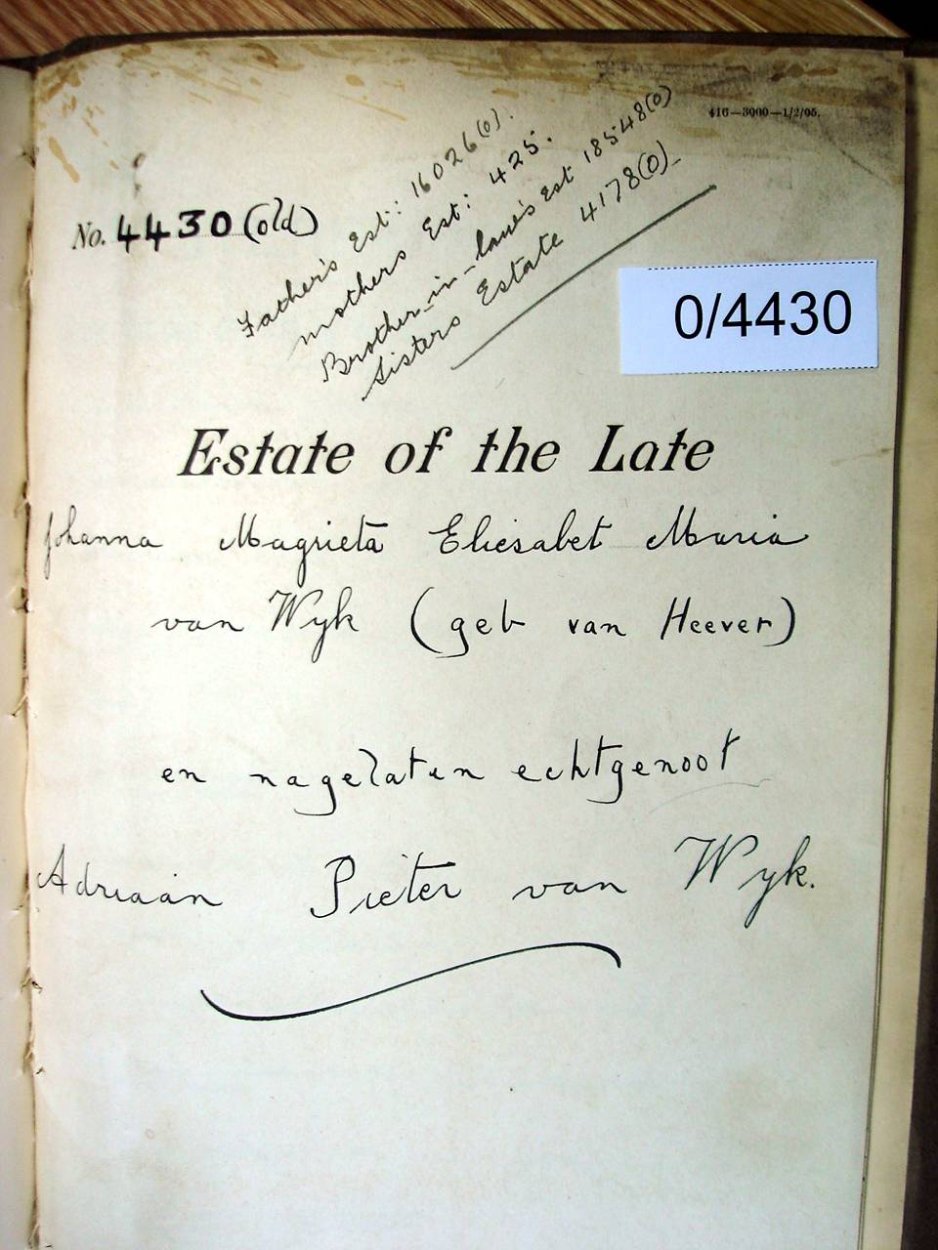 416—3000—1/2/05.
No. 4430 (old)
Father's Est: 16026(0).
mothers Est: 425.
Brother-in-law's Est 18548(0)
Sisters Estate 4178(0)
0/4430
Estate of the Late
Johanna Magrieta Eliesabet Maria
van Wyk (geb van Heever)
en nagelaten echtgenoot
Adriaan Pieter van Wyk.